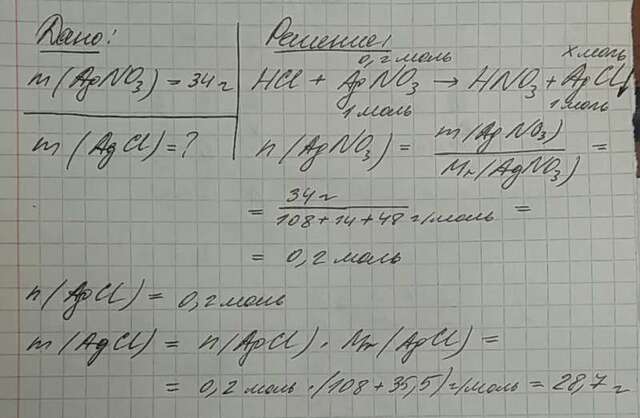 Дано:
m(AgNO₃) = 34 г
m(AgCl) = ?
Решение:
0,2 моль x моль
HCl + AgNO₃ → HNO₃ + AgCl↓
1 моль 1 моль
n(AgNO₃) = m(AgNO₃) / Mr(AgNO₃) =
= 34 г / 108 + 14 + 48 г/моль =
= 0,2 моль
n(AgCl) = 0,2 моль
m(AgCl) = n(AgCl) · Mr(AgCl) =
= 0,2 моль · (108 + 35,5) г/моль = 28,7 г